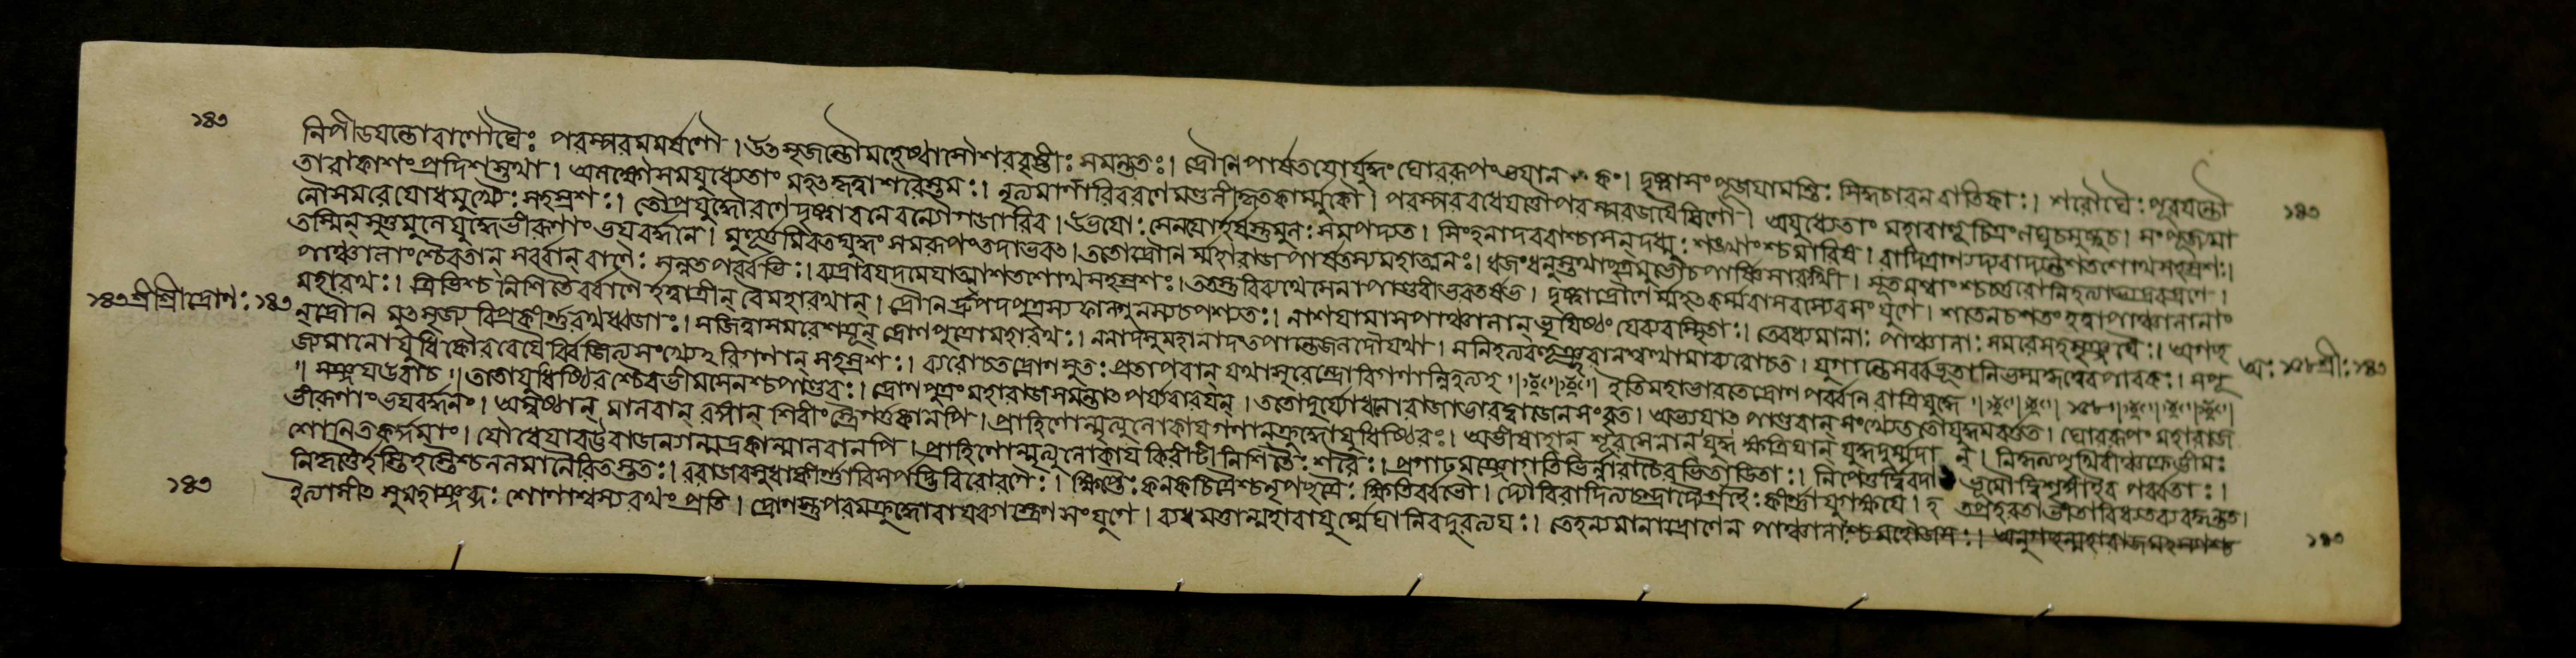 ১৪৩
নিপীডযন্তৌবাণৌঘৈঃ পরস্পরমমর্ষণৌ । উৎসৃজন্তৌমহেষ্বাসৌশরবৃষ্টীঃ সমন্ততঃ । দ্রৌনিপার্ষতযোর্যুদ্ধং ঘোররূপং ভযানকং । দৃষ্ট্বাসংপূজযামাসুঃ সিদ্ধচারনবাতিকাঃ । শরৌঘৈঃ পূরযন্তৌ
তাবাকাশং প্রদিশস্তথা । অলক্ষ্যৌসমযুধ্যেতাং মহৎকৃত্বাশরৈস্তমঃ । নৃত্যমানাবিবরণেমণ্ডলীকৃতকার্ম্মুকৌ । পরস্পরবধেযত্তৌপরস্পরজযৈষিণৌ । অযুধ্যেতাং মহাবাহূচিত্রং লঘুচসুষ্ঠুচ । সংপূজ্যমা ১৪৩
নৌসমরেযোধমুখ্যৈঃ সহস্রশঃ । তৌপ্রযুদ্ধৌরণেদৃষ্ট্বাবনেবন্যৌগজাবিব । উভযোঃ সেনযোর্হর্ষস্তুমুলঃ সমপদ্যত । সিংহনাদরবাশ্চাসন্ দধ্মুঃ শঙ্খাংশ্চমারিষ । বাদিত্রাণ্যভ্যবাদ্যন্তশতশোথসহস্রশঃ ।
তস্মিন্ সুতুমুলেযুদ্ধেভীরূণাং ভযবর্দ্ধনে । মুহূর্ত্তমিবতদ্যুদ্ধং সমরূপং তদাভবৎ । ততোদ্রৌনির্ম্মহারাজপার্ষতস্যমহাত্মনঃ । ধ্বজং ধনুস্তথাছত্রমুভৌচপার্ষ্ণিসারথী । সূতমশ্বাংশ্চচতুরোনিহত্যাভ্যদ্রবদ্রণে ।
পাঞ্চালাংশ্চৈবতান্ সর্ব্বান্ বাণৈঃ সন্নতপর্ব্বভিঃ । ব্যদ্রাবযদমেযাত্মাশতশোথসহস্রশঃ । ততস্তুবিব্যথেসেনাপাণ্ডবীভরতর্ষভ । দৃষ্ট্বাদ্রৌণের্ম্মহৎকর্ম্মবাসবস্যেবসংযুগে । শতেনচশতং হত্বাপাঞ্চালানাং
মহারথঃ । ত্রিভিশ্চনিশিতৈর্বাণৈর্হত্বাত্রীন্ বৈমহারথান্ । দ্রৌনির্দ্রুপদপুত্রস্যফাল্গুনস্যচপশ্যতঃ । নাশযামাসপাঞ্চালান্ ভূযিষ্ঠং যেব্যবস্থিতাঃ । তেবধ্যমানাঃ পাঞ্চালাঃ সমরেসহসৃঞ্জযৈঃ । অগচ্ছ
১৪৩শ্রীশ্রীদ্রোণঃ ১৪৩ ন্ দ্রৌনিমুৎসৃজ্যবিপ্রকীর্ণরথধ্বজাঃ । সজিত্বাসমরেশত্রূন্ দ্রোণপুত্রোমহারথঃ । ননাদসুমহানাদং তপান্তেজলদোযথা । সনিহত্যবহূঞ্ছূরানশ্বত্থামাব্যরোচত । যুগান্তেসর্ব্বভূতানিভস্মকৃত্বেবপাবকঃ । সংপূ
জ্যমানোযুধিকৌরবেযৈর্বিজিত্যসংখ্যেঽরিগণান্ সহস্রশঃ । ব্যরোচতদ্রোণসুতঃ প্রতাপবান্ যথাসুরেন্দ্রোরিগণান্নিহত্যহ ॥ ইতিমহাভারতেদ্রোণপর্ব্বনিরাত্রিযুদ্ধে ॥ ১৫৮ ॥ অঃ ১৫৮শ্রীঃ ১৪৩
॥ সঞ্জযউবাচ ॥ ততোযুধিষ্ঠিরশ্চৈবভীমসেনশ্চপাণ্ডবঃ । দ্রোণপুত্রং মহারাজসমন্তাৎপর্য্যবারযন্ । ততোদুর্য্যোধনোরাজাভারদ্বাজেনসংবৃতঃ । অভ্যযাৎপাণ্ডবান্ সংখ্যেততোযুদ্ধমবর্ত্তত । ঘোররূপং মহারাজ
ভীরূণাং ভযবর্দ্ধনং । অম্বষ্ঠান্ মালবান্ বঙ্গান্ শিবীংস্ত্রৈগর্ত্তকানপি । প্রাহিণোন্মৃত্যুলোকাযগণান্ ক্রুদ্ধোযুধিষ্ঠিরঃ । অভীষাহান্ শূরসেনান্ যুদ্ধক্ষত্রিযান্ যুদ্ধদুর্ম্মদান্ । নিকৃত্যপৃথিবীঞ্চক্রেভীমঃ
শোনিতকর্দ্দমাং । যৌধেযাবট্টরাজনগন্মদ্রকান্মালবানপি । প্রাহিণোন্মৃত্যুলোকাযকিরীটীনিশিতৈঃ শরৈঃ । প্রগাঢমঞ্জোগতিভির্নারাচৈরভিতাডিতাঃ । নিপেতুর্দ্বিরদাভূমৌদ্বিশৃঙ্গাইবপর্ব্বতাঃ ।
নিকৃত্তৈর্হস্তিহস্তৈশ্চললমানৈরিতস্ততঃ । ররাজবসুধাকীর্ণাবিসর্পদ্ভিরিবোরগৈঃ । ক্ষিপ্তৈঃ কনকচিত্রৈশ্চনৃপছত্রৈঃ ক্ষিতির্বভৌ । দ্যৌরিবাদিত্যচন্দ্রাদ্যৈর্গ্রহৈঃ কীর্ণাযুগক্ষযে । হতপ্রহরতাভীতাবিধ্যতব্যবকৃন্তত ।
১৪৩ ইত্যাসীৎসুমহাঞ্ছব্দঃ শোণাশ্বস্যরথং প্রতি । দ্রোণস্তুপরমক্রুদ্ধোবাযব্যাস্ত্রেণসংযুগে । ব্যধমত্তান্মহাবাযুর্ম্মেঘানিবদুরত্যযঃ । তেহন্যমানাদ্রোণেনপাঞ্চালাশ্চমহৌজসঃ । ১৪৩